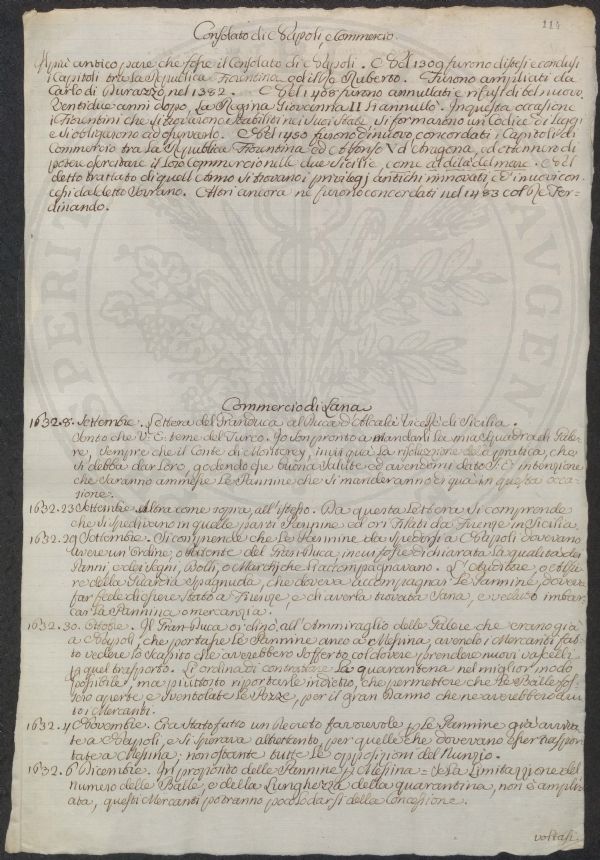 114
Consolato di Napoli, e Commercio.
Assai antico pare che fosse il Consolato di Napoli. Nel 1309 furono distesi e conclusi
i Capitoli tra la Repubblica Fiorentina, ed il Re Ruberto. Furono ampliati da
Carlo di Durazzo nel 1382. Nel 1408 furono annullati e rifusi di bel nuovo.
Ventidue anni dopo, la Regina Giovanna II gli annullò. In questa occasione
i Fiorentini che si trovarono stabiliti nei suoi Stati, si formarono un Codice di Leggi
e si obbligarono ad osservarlo. Nel 1450 furono di nuovo concordati i Capitoli di
Commercio tra la Repubblica Fiorentina ed Alfonso V d'Aragona, ed ottennero di
potere esercitare il loro Commercio nelle due Sicilie, come al di là del mare. Nel
detto trattato di quell'Anno si trovano i privilegj antichi rinnovati, e i nuovi con-
cessi dal detto Sovrano. Altri ancora ne furono concordati nel 1483 col Re Fer-
dinando.
Commercio di Lana
1632. 8. Settembre. Lettera del Granduca al Duca d'Alcalà Viceré di Sicilia.
Sento che V. E. teme del Turco. Io son pronto a mandarli la mia Squadra di Gale-
re, sempre che il Conte di Monterey, invii qua la risoluzione della pratica, che
si debba dar Loro, godendo esse buona salute ed avendomi dato S. E. intenzione
che saranno ammesse le Pannine che si manderanno di qua in questa occa-
sione.
1632. 23 Settembre. Altra come sopra, all'istesso. Da questa Lettera si comprende
che si spedivano in quelle parti Pannine ed ori filati da Firenze in Sicilia.
1632. 29 Settembre. Si comprende che le Pannine da spedirsi a Napoli dovevano
avere un'Ordine, o Patente del Gran Duca, in cui fosse dichiarata la qualità dei
Panni, e dei Segni, Bolli, o Marchj che li accompagnavano. L'Auditore o Alfie-
re della Guardia Spagnuola, che doveva accompagnar le Pannine, doveva
far fede di essere stato a Firenze, e di averla trovata Sana, e veduto imbar-
car la Pannina o mercanzia.
1632. 30. Ottobre. Il Gran Duca ordinò all'Ammiraglio delle Galere che erano già
a Napoli, che portasse le Pannine anco a Messina, avendo i Mercanti fat-
to vedere lo scapito che averebbero sofferto col dover prendere nuovi vascelli
p quel trasporto. Si ordina di contrattare la quarantena nel miglior modo
possibile, ma piuttosto riportarle indietro, che permettere che le Balle fos-
sero aperte e sventolate le Pezze, per il gran danno che ne averebbero avu-
to i Mercanti.
1632. 4 Novembre. Era stato fatto un Decreto favorevole p le Pannine già arriva-
te a Napoli, e si sperava altrettanto per quelle che dovevano esser traspor-
tate a Messina; nonostante tutte le opposizioni del Nunzio.
1632. 6 Dicembre. In proposito delle Pannine p Messina = Se la limitazione del
numero delle Balle, e della Lunghezza della quarantina, non è ampli-
ata, questi Mercanti potranno poco lodarsi della Concessione.
voltasi